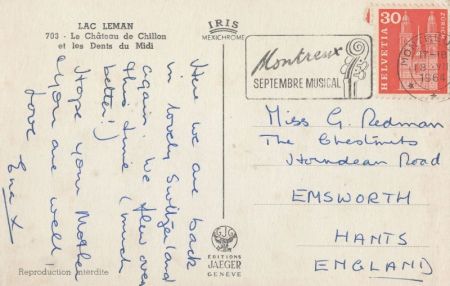 LAC LEMAN
703 - Le Château de Chillon
et les Dents du Midi
IRIS
MEXICHROME
Here we are back
in lovely Switzerland
again. We flew over
this time (much
better!)
Hope your Mother
& you are well,
love
Ena X
Reproduction interdite
EDITIONS
JAEGER
GENÈVE
Montreux
SEPTEMBRE MUSICAL
30
HELVETIA
ZÜRICH
1964
Miss G. Redman
The Chestnuts
Horndean Road
EMSWORTH
HANTS
ENGLAND